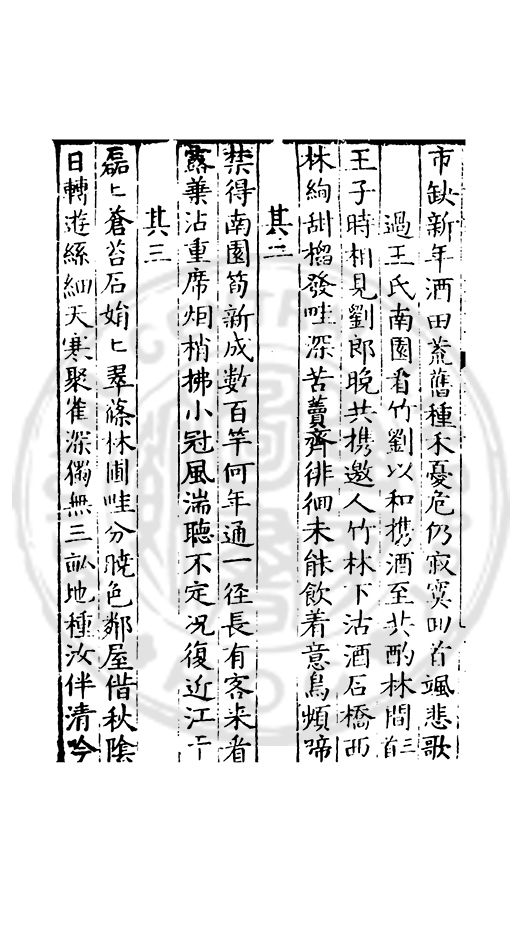 市缺新年酒田荒舊種禾憂危仍寂寞叩首颯悲歌
過王氏南園看竹劉以和携酒至共酌林間三首
王子時相見劉郎晚共携邀人竹林下沽酒石橋西
林絢甜榴發畦深苦藚齊徘徊未能飲着意鳥頻啼
其二
禁得南園笱新成數百竿何年通一徑長有客來看
露葉沾重席烟梢拂小冠風湍聽不定況復近江干
其三
磊〻蒼苔石娟〻翠篠林圃畦分曉色鄰屋偕秋陰
日轉遊絲細天寒聚雀深獨無三畝地種汝伴清吟